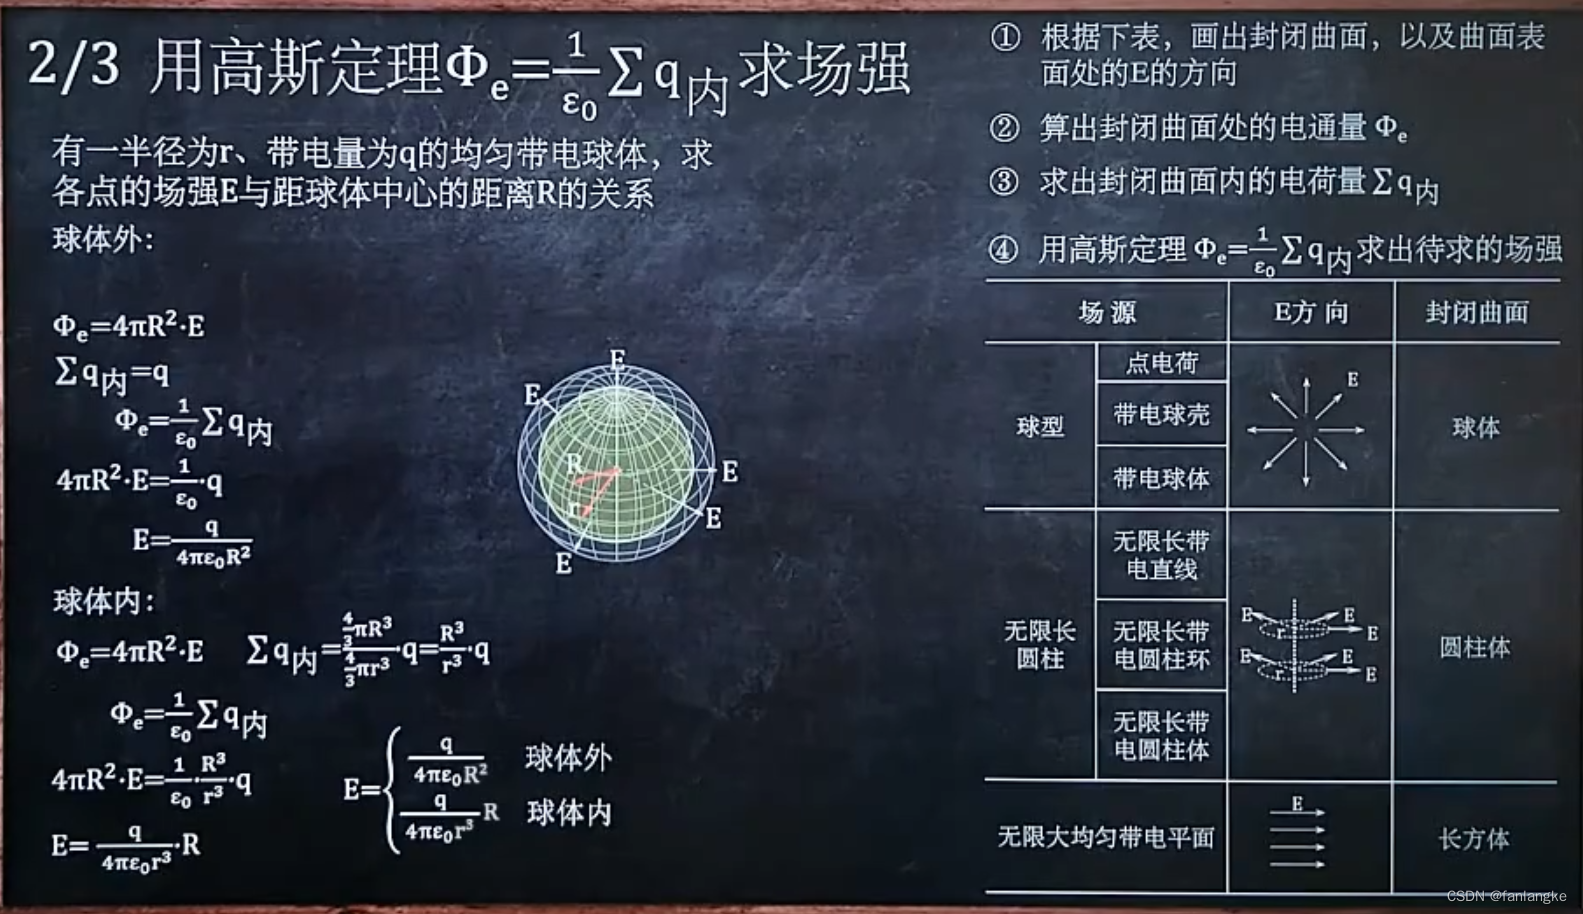 2/3 用高斯定理Φe=1/ε0 Σq内 求场强
有一半径为r、带电量为q的均匀带电球体，求
各点的场强E与距球体中心的距离R的关系
球体外：
Φe=4πR²·E
Σq内=q
Φe=1/ε0 Σq内
4πR²·E=1/ε0·q
E=q/4πε0R²
球体内：
Φe=4πR²·E Σq内=4/3πR³/4/3πr³·q=R³/r³·q
Φe=1/ε0 Σq内
4πR²·E=1/ε0·R³/r³·q
E=q/4πε0r³·R
E={
q/4πε0R² 球体外
q/4πε0r³ R 球体内
E
E
R
r
E
E
E
① 根据下表，画出封闭曲面，以及曲面表
面处的E的方向
② 算出封闭曲面处的电通量 Φe
③ 求出封闭曲面内的电荷量 Σq内
④ 用高斯定理 Φe=1/ε0 Σq内 求出待求的场强
场 源 E方 向 封闭曲面
球型
点电荷
带电球壳
带电球体
E
球体
无限长
圆柱
无限长带
电直线
无限长带
电圆柱环
无限长带
电圆柱体
E E
r E
E E
r E
圆柱体
无限大均匀带电平面
E
长方体
CSDN @fanlangke